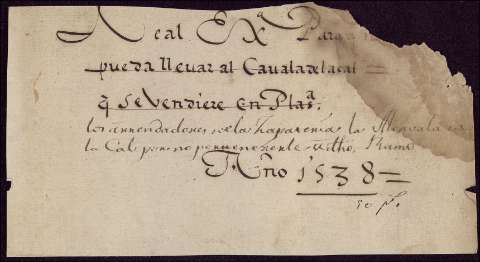 Real Ex.ª Para
pueda llevar al Cavala de la cal =
q̃ se Vendiere en Plas.ª;
los arrendadores de la la Alcavala
la Cal, por no perteneciente dicho Ramo
Año 1538 =